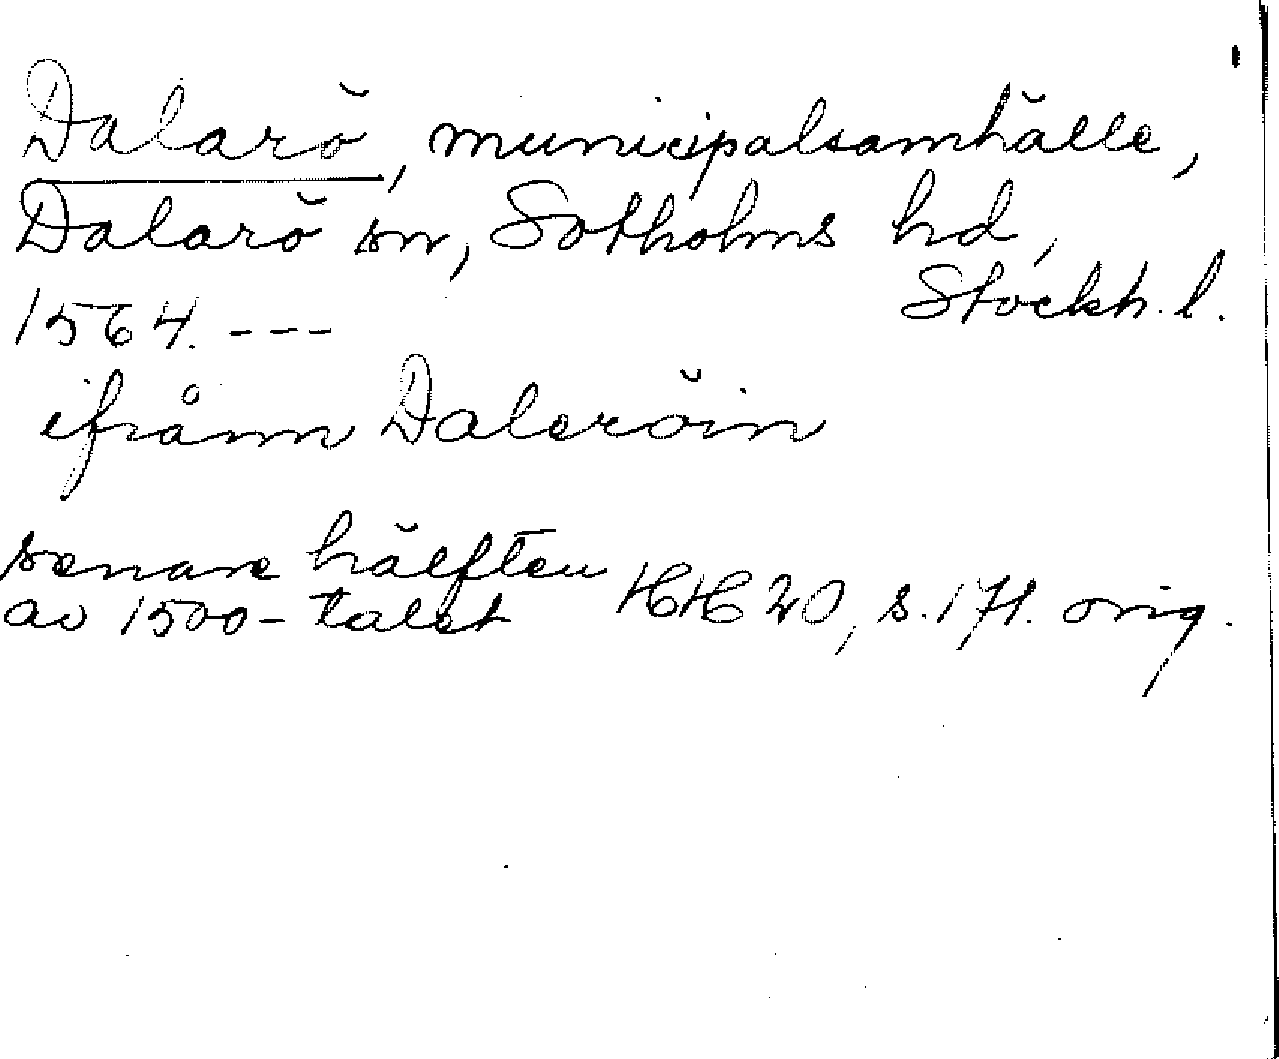 Dalarö, municipalsamhälle,
Dalarö sn, Sotholms hd,
Stockh. l.
1564. ---
ifrånn Daleröin
senare hälften
av 1500-talet HH 20, s. 171. orig.